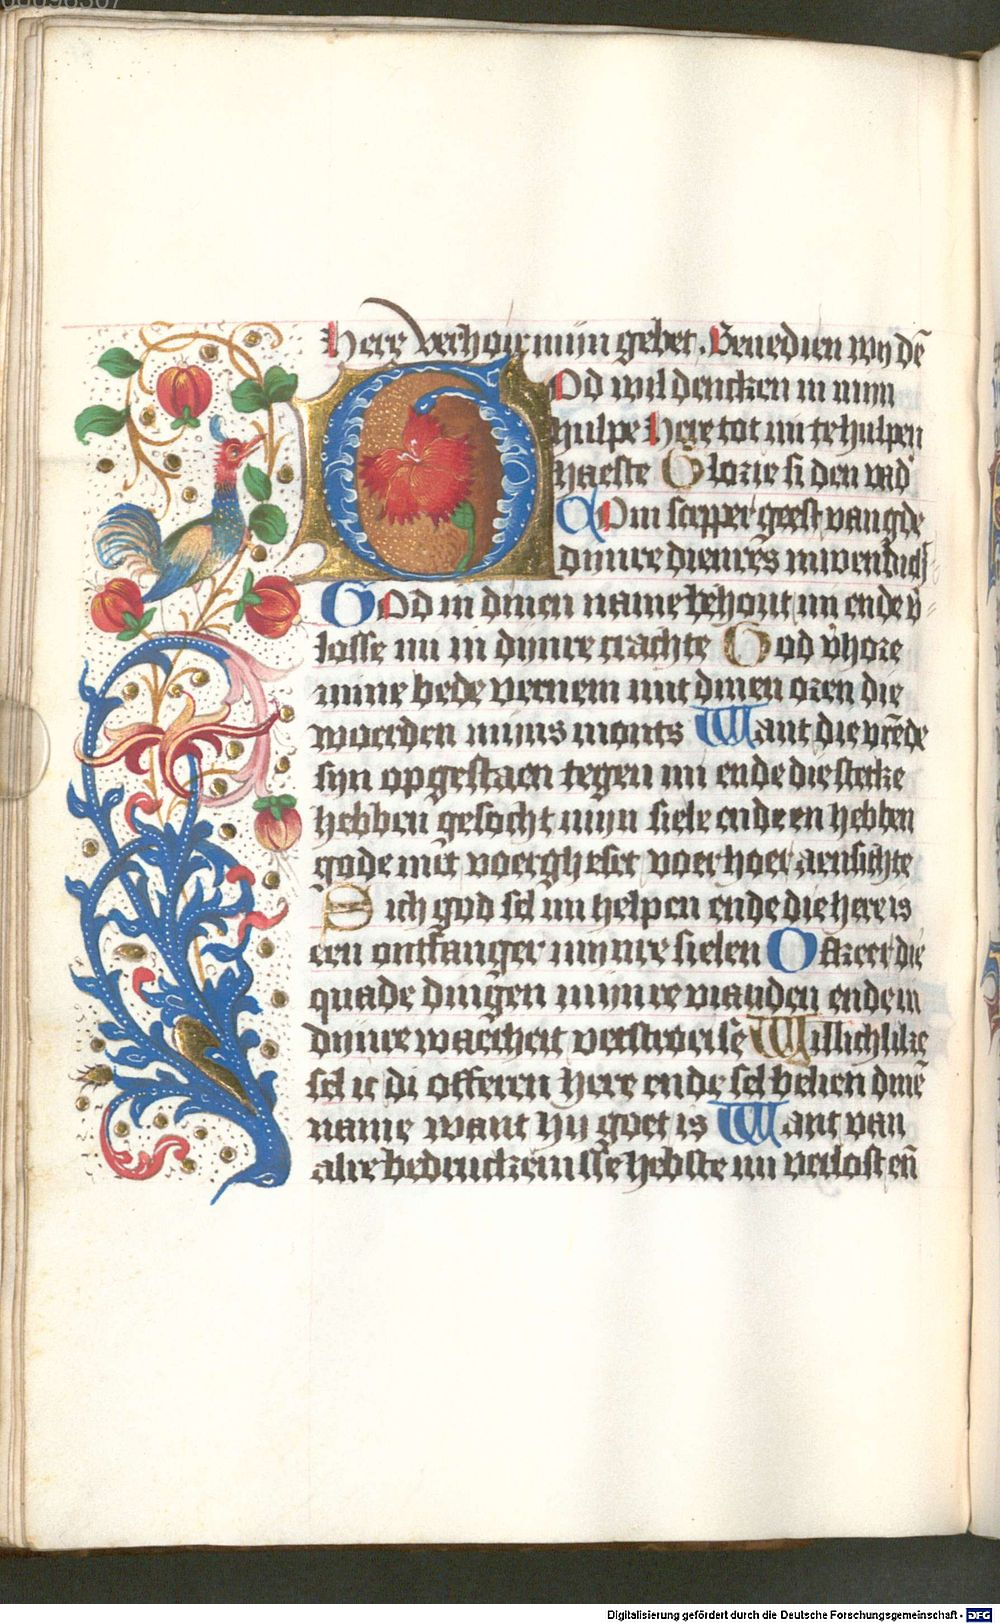 here verhoir mijn gebet. Benedien wy dē
God wil dencken in mijn
hulpe here tot mi te hulpen
haeste Glorie si den vad
Com scepper geest van gde
dijnre dienres
God in dinen name behout mi ende v̄
losse mi in dijnre crachte God v̄hore
mine bede vernem mit dinen oren die
woerden mijns monts Want die vrēde
sijn opgestaen tegen mi ende die sterke
hebben gesocht mijn siele ende en hebben
gode niet voergheset voer hoer aensichte
Sich god sel mi helpen ende die here is
een ontfanger mijnre sielen O keer die
quade dingen mijnre vianden ende in
dijnre waerheit verstroeise Willichlike
sel ic di offeren here ende sel belien dinē
name want hij goet is Want van
alre bedruckenisse hebste mi verlost eñ
Digitalisierung gefördert durch die Deutsche Forschungsgemeinschaft - DFG